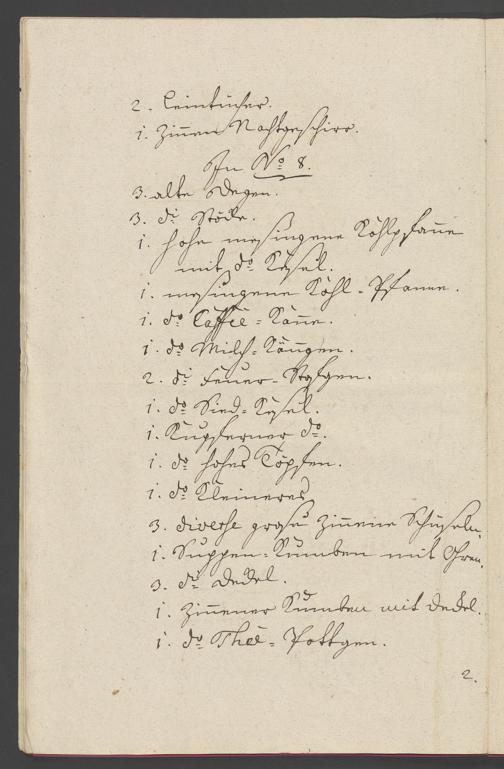 2. Leintücher.
1. Zinnen Nachtgeschirr.
In No 8.
3. alte Degen.
3. do Stöcke.
1. hohe mesingene Kohlpfanne
mit do Kesel.
1. mesingene Kohl-Pfanne.
1. do Caffée-Kanne.
1. do Milch-Kängen.
2. do Feuer-
1. do Sied-Kesel.
1. Kupferner do.
1. do hohes Töpfen.
1. do Kleineres
3. diverse grose Zinnene Schüseln.
1. Suppen-Kumben mit Ohren.
3. do Deckel.
1. Zinnener Kumben mit Deckel.
1. do Theé-Pottgen.
2.